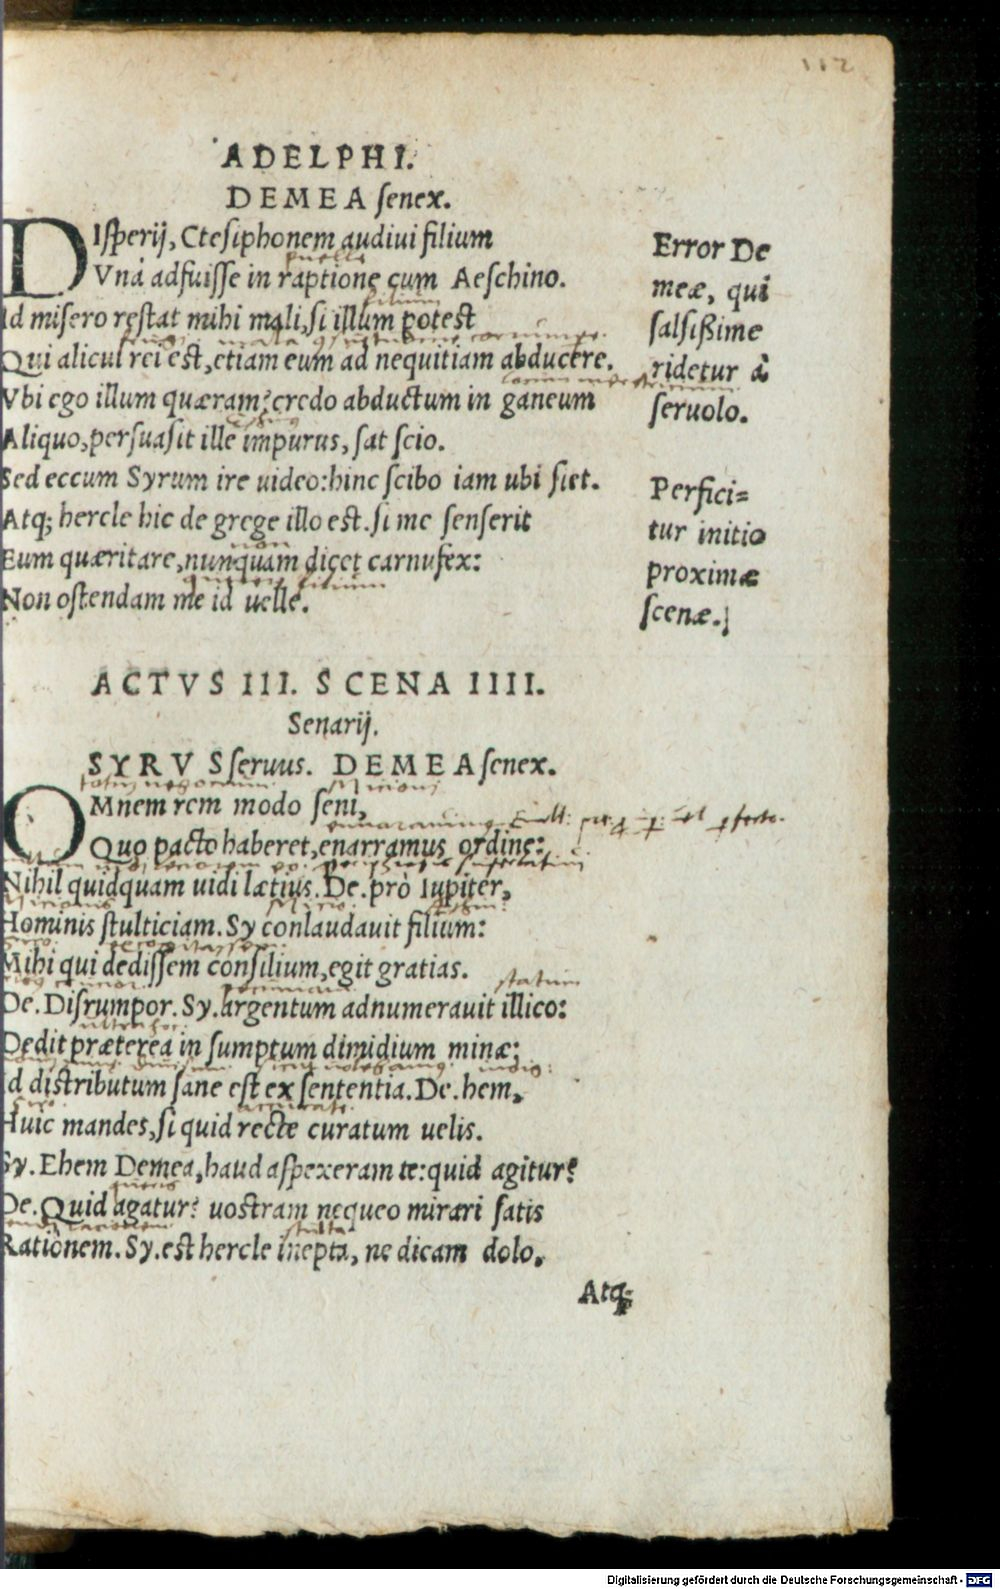 112
ADELPHI.
DEMEA senex.
DIsperij, Ctesiphonem audiui filium
Vnà adfuisse in raptione cum Aeschino.
Id misero restat mihi mali, si illum potest
Qui alicui rei est, etiam eum ad nequitiam abducere.
Vbi ego illum quæram? credo abductum in ganeum
Aliquo, persuasit ille impurus, sat scio.
Sed eccum Syrum ire uideo: hinc scibo iam ubi siet.
Atq; hercle hic de grege illo est. si me senserit
Eum quæritare, nunquam dicet carnufex:
Non ostendam me id uelle.
Error De
meæ, qui
salsißime
ridetur à
seruolo.
Perfici=
tur initio
proximæ
scenæ.
ACTVS III. SCENA IIII.
Senarij.
SYRVS seruus. DEMEA senex.
OMnem rem modo seni,
Quo pacto haberet, enarramus ordine:
Nihil quidquam uidi lætius. De. prò Iupiter,
Hominis stulticiam. Sy conlaudauit filium:
Mihi qui dedissem consilium, egit gratias.
De. Disrumpor. Sy. argentum adnumerauit illico:
Dedit præterea in sumptum dimidium minæ;
Id distributum sane est ex sententia. De. hem,
Huic mandes, si quid recte curatum uelis.
Sy. Ehem Demea, haud aspexeram te: quid agitur?
De. Quid agatur? uostram nequeo mirari satis
Rationem. Sy. est hercle inepta, ne dicam dolo,
Atq;
Digitalisierung gefördert durch die Deutsche Forschungsgemeinschaft - DFG